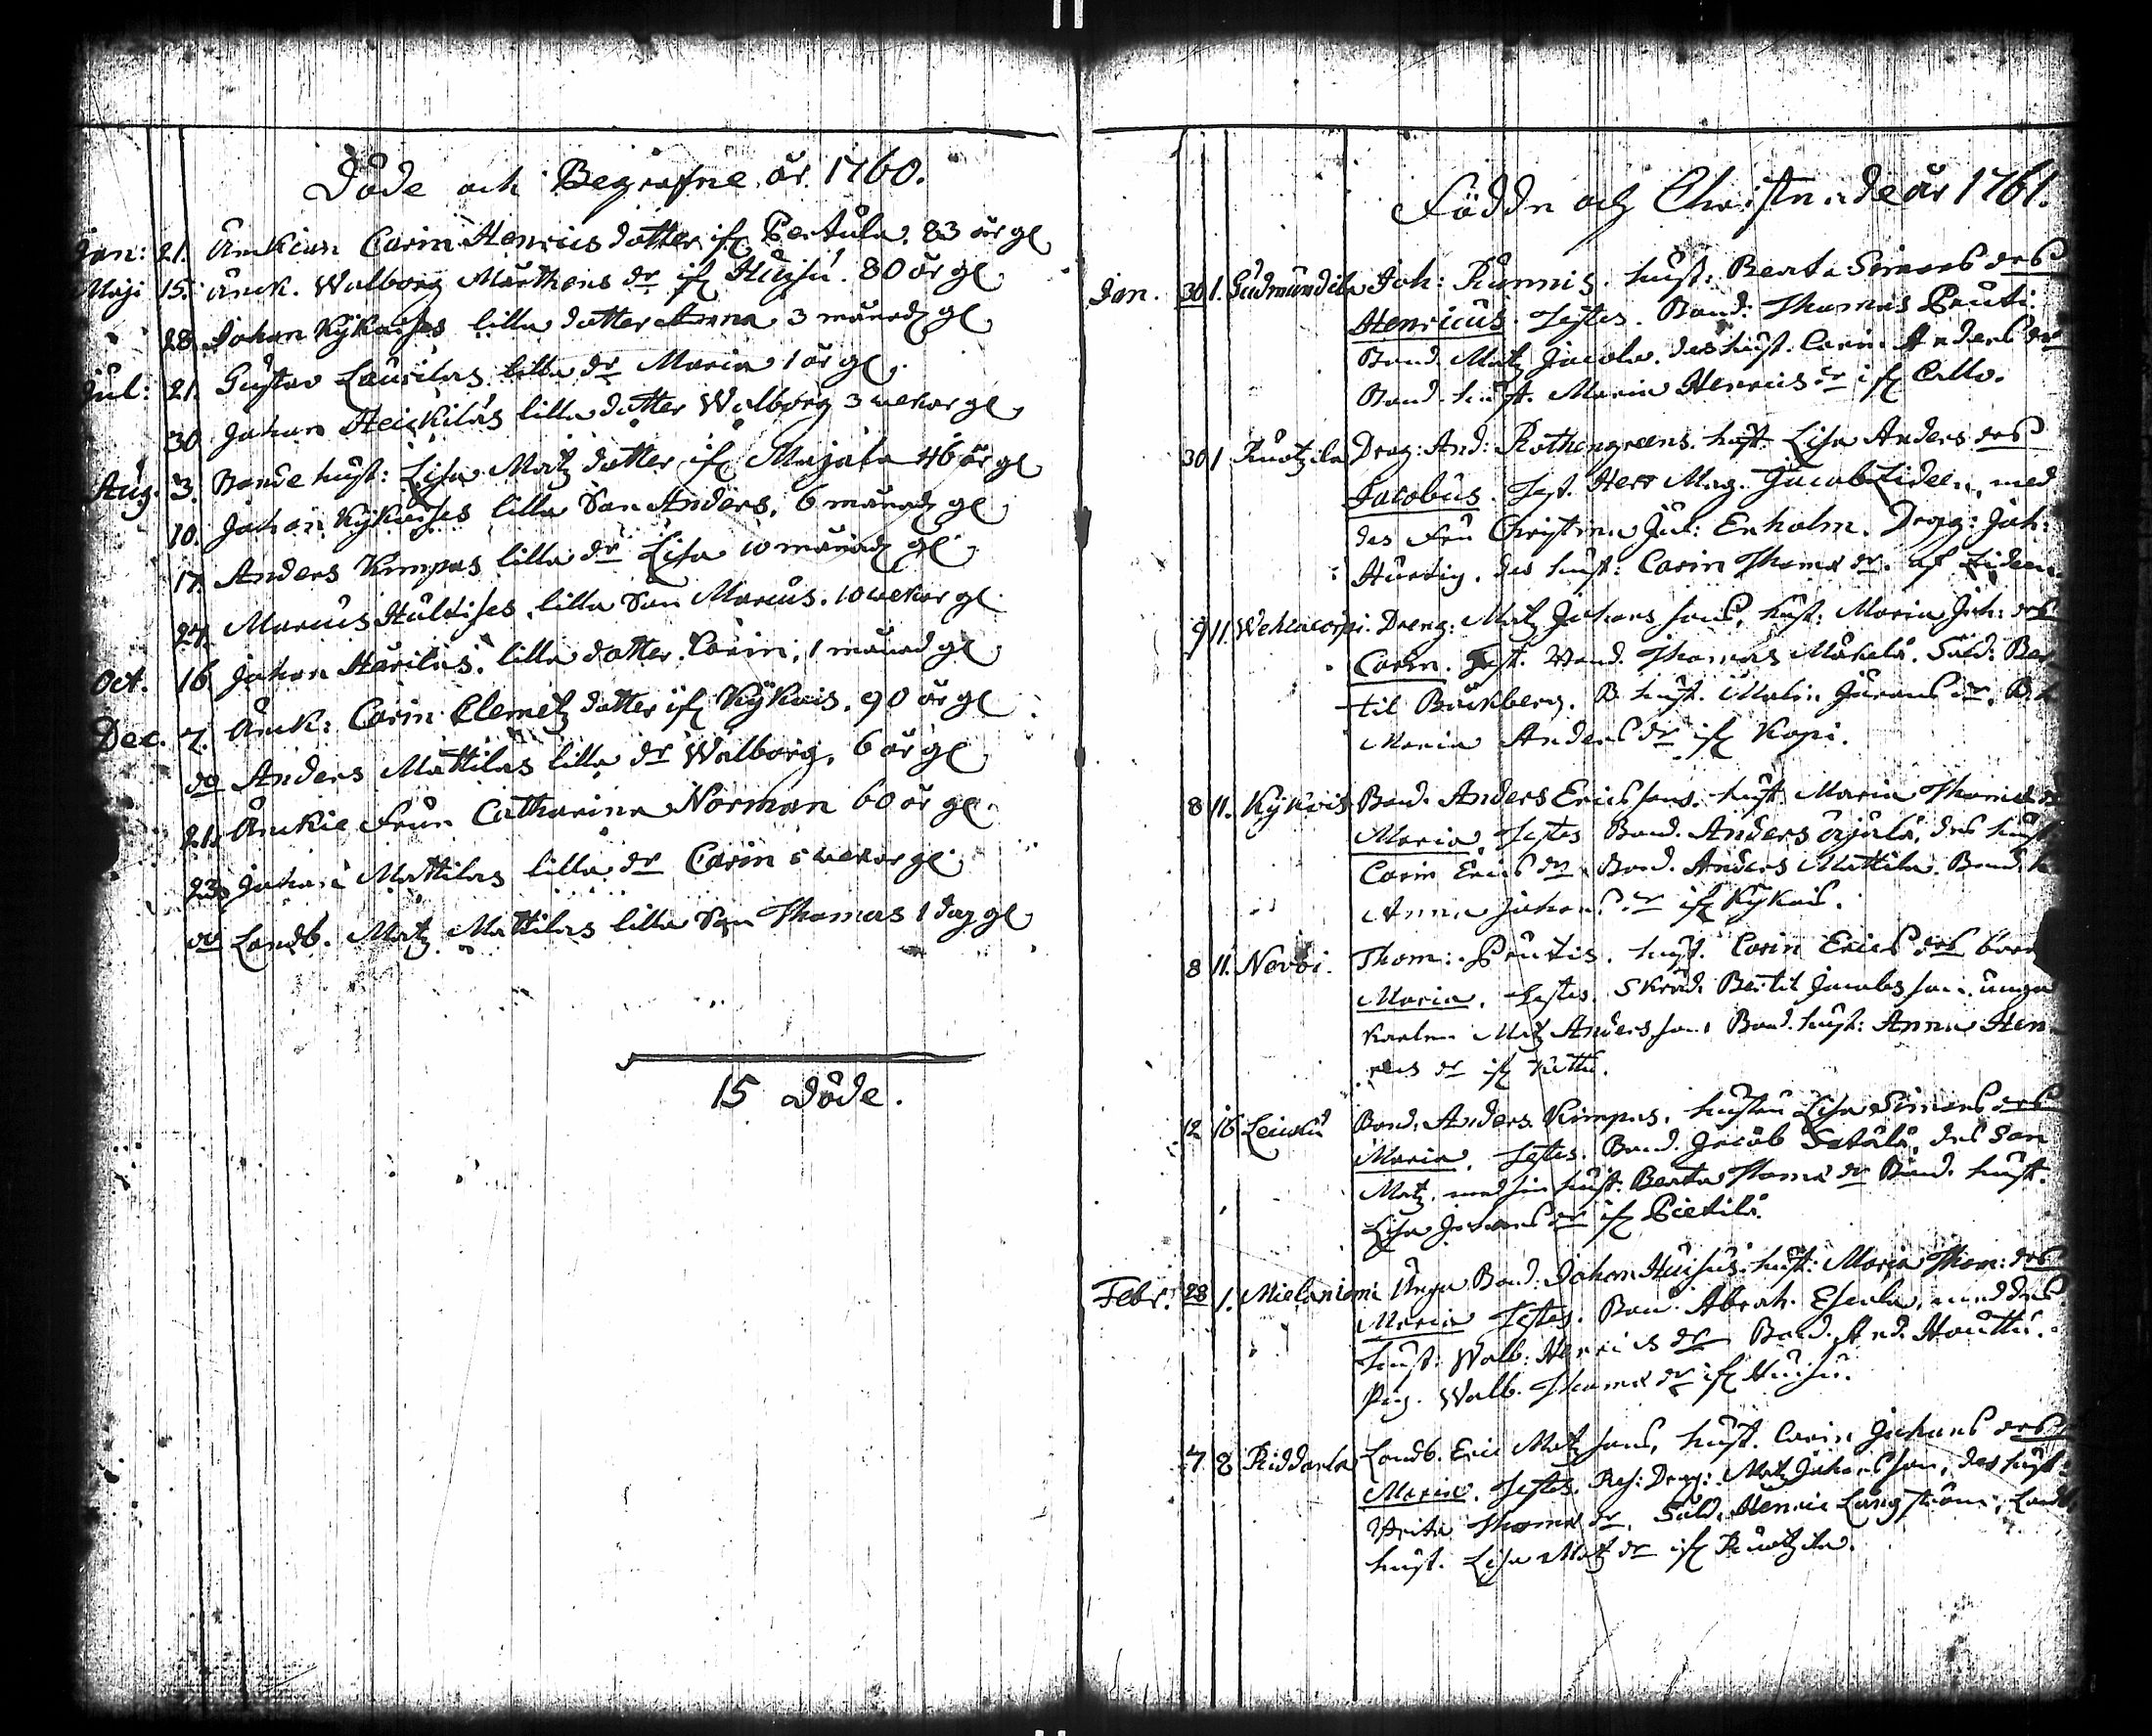 Döde och Begrafne år 1760.
Jan: 21. Änkian Carin Henrics dotter ifr Pertula. 83 år gl
Maji 15. Änck. Walborg Mårthens dr ifr Huisu. 80 år gl
28. Johan Kykaises lilla dotter Anna 3 månad gl
Jul: 21. Gustav Laurilas lilla dr Maria 1 år gl.
30 Johan Heickiläs lilla dotter Walborg 3 wekor gl
Aug. 3. Bonde hust: Lisa Matz dotter ifr Majala 46 år gl
10. Johan Kykaises lilla Son Anders. 6 månad gl
17. Anders Kimpas lilla dr Lisa 10 månad gl
27. Marcus lilla Son Marcus. 10 wekor gl.
Oct. 16 Johan lilla dotter Carin, 1 månad gl
Dec. 7. Änck: Carin Clemetz dotter ifr Kykais. 90 år gl
do Anders Mattilas lilla dr Walborg. 6 år gl
21. Änckie Frun Catharina Norman 60 år gl.
23. Johan Mattilas lilla dr Carin 5 wekor gl.
do Landb. Matz Mattilas lilla Son Thomas 1 dag gl
15 döde.
Födde och Christnade år 1761.
Jan. 30 1. Gudmundila Joh: Runnis. hust: Beata Simons drs
Henricus. Testes. Bond. Thomas Prusti.
Bond. Matz Jacola. des hust. Carin Anders dr
Bond. hust. Maria Henrics dr ifr Callo.
30 1 Ruotzila Drag: And: Rothengreens hust Lisa Anders drs
Jacobus. Test. Herr Mag. Jacob Lideen, med
des Fru Christina Jul: Enholm. Drag: Joh:
Hurtig. des hust: Carin Thoms dr. af Lideen.
9 11. Wehiacorpi. Dreng: Matz Johans sons, hust: Maria Joh: drs
Carin. Test. Bond. Thomas Mäkelä. Sold: Ber
til Bäckberg. B. hust. Malin Jörans dr. B. h
Maria Anders dr ifr Kopi.
8 11. Kykais Bond. Anders Erics sons. hust. Maria Thoms
Maria. Testes Bond. Anders Äijälä, des hust
Carin Erics dr Bond. Anders Mattila. Bond. h
Anna Johans dr ifr Kykais.
8 11. Novoi. Thom: Prustis. hust. Carin Erics drs barn
Maria. Testes. Skräd. Bertil Jacobs son. unga
karlen Matz Anders son. Bond. hust: Anna Hen
rics dr ifr
12 16 Leinku Bond. Anders Kimpas, hustru Lisa Simons drs
Maria. Testes. Bond. Jacob Setälä, des Son
Matz. med sin hust. Beata Thoms dr Bond. hust.
Lisa Johans dr ifr Pietilä.
Febr. 28 1. Mielaniemi Unga Bond. Johan Huisus. hust: Maria Thom: drs
Maria Testes. Bon. Abrah. Eskola, med des
hust: Walb: Henrics dr Bond. And. Houttu.
Pig. Walb. Thoms dr ifr Huisu.
7 8 Riddarla Landb. Eric Matz sons, hust. Carin Johans drs
Maria. Testes. Res: Drag: Matz Johansson, des hust.
Brita Thoms dr. Sold. Henric Långström, Landb
hust. Lisa Matz dr ifr Ruotzila.